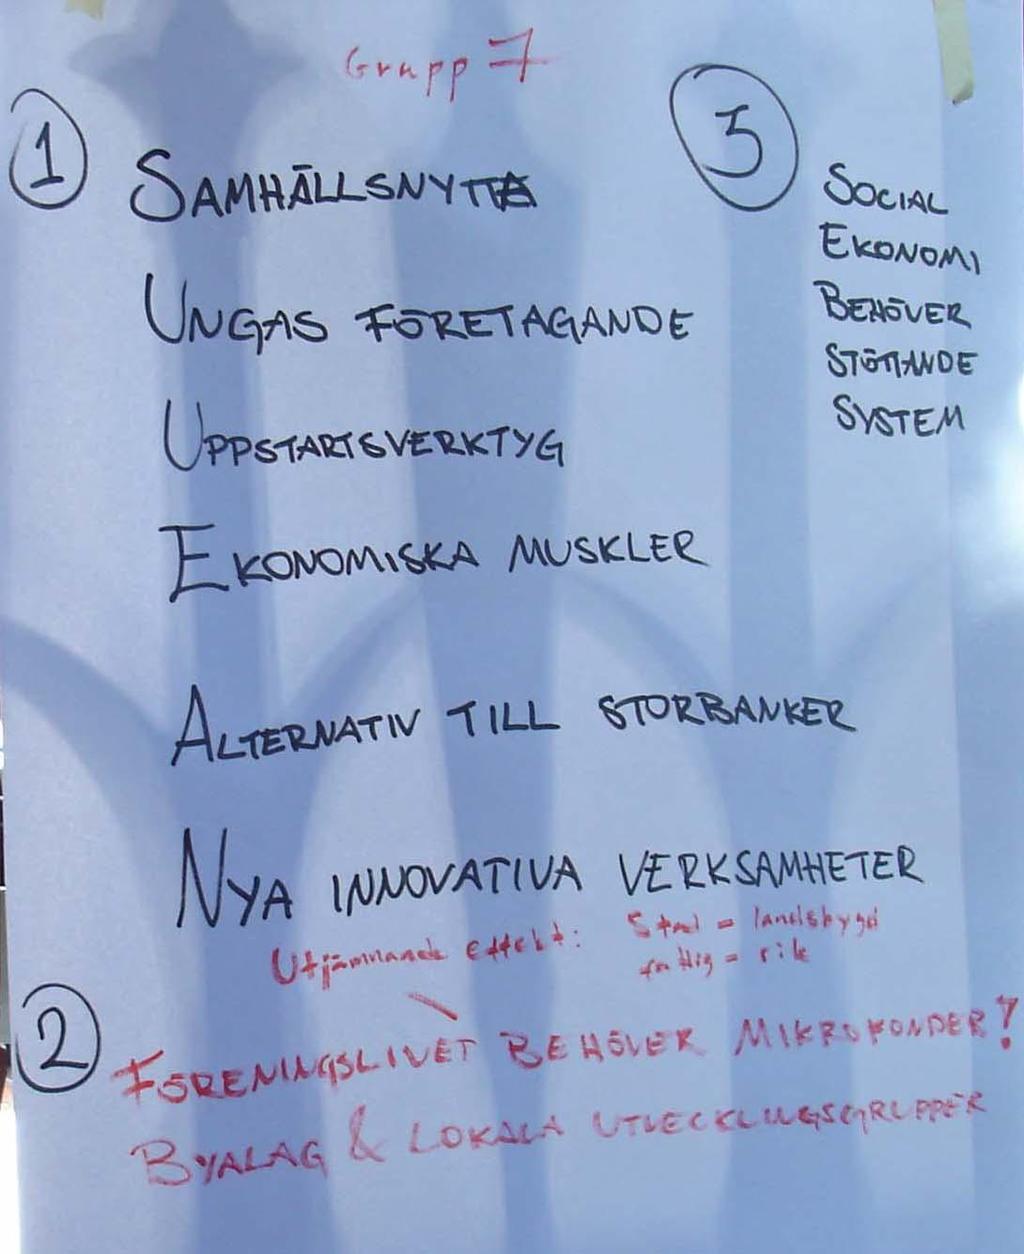 Grupp 7
1
SAMHÄLLSNYTTA
UNGAS FÖRETAGANDE
UPPSTARTSVERKTYG
EKONOMISKA MUSKLER
ALTERNATIV TILL STORBANKER
NYA INNOVATIVA VERKSAMHETER
Utjämnande effekt: Stad = landsbygd
fattig = rik
2
FÖRENINGSLIVET BEHÖVER MIKROFONDER!
BYALAG & LOKALA UTVECKLINGSGRUPPER
3
SOCIAL
EKONOMI
BEHÖVER
STÖTTANDE
SYSTEM